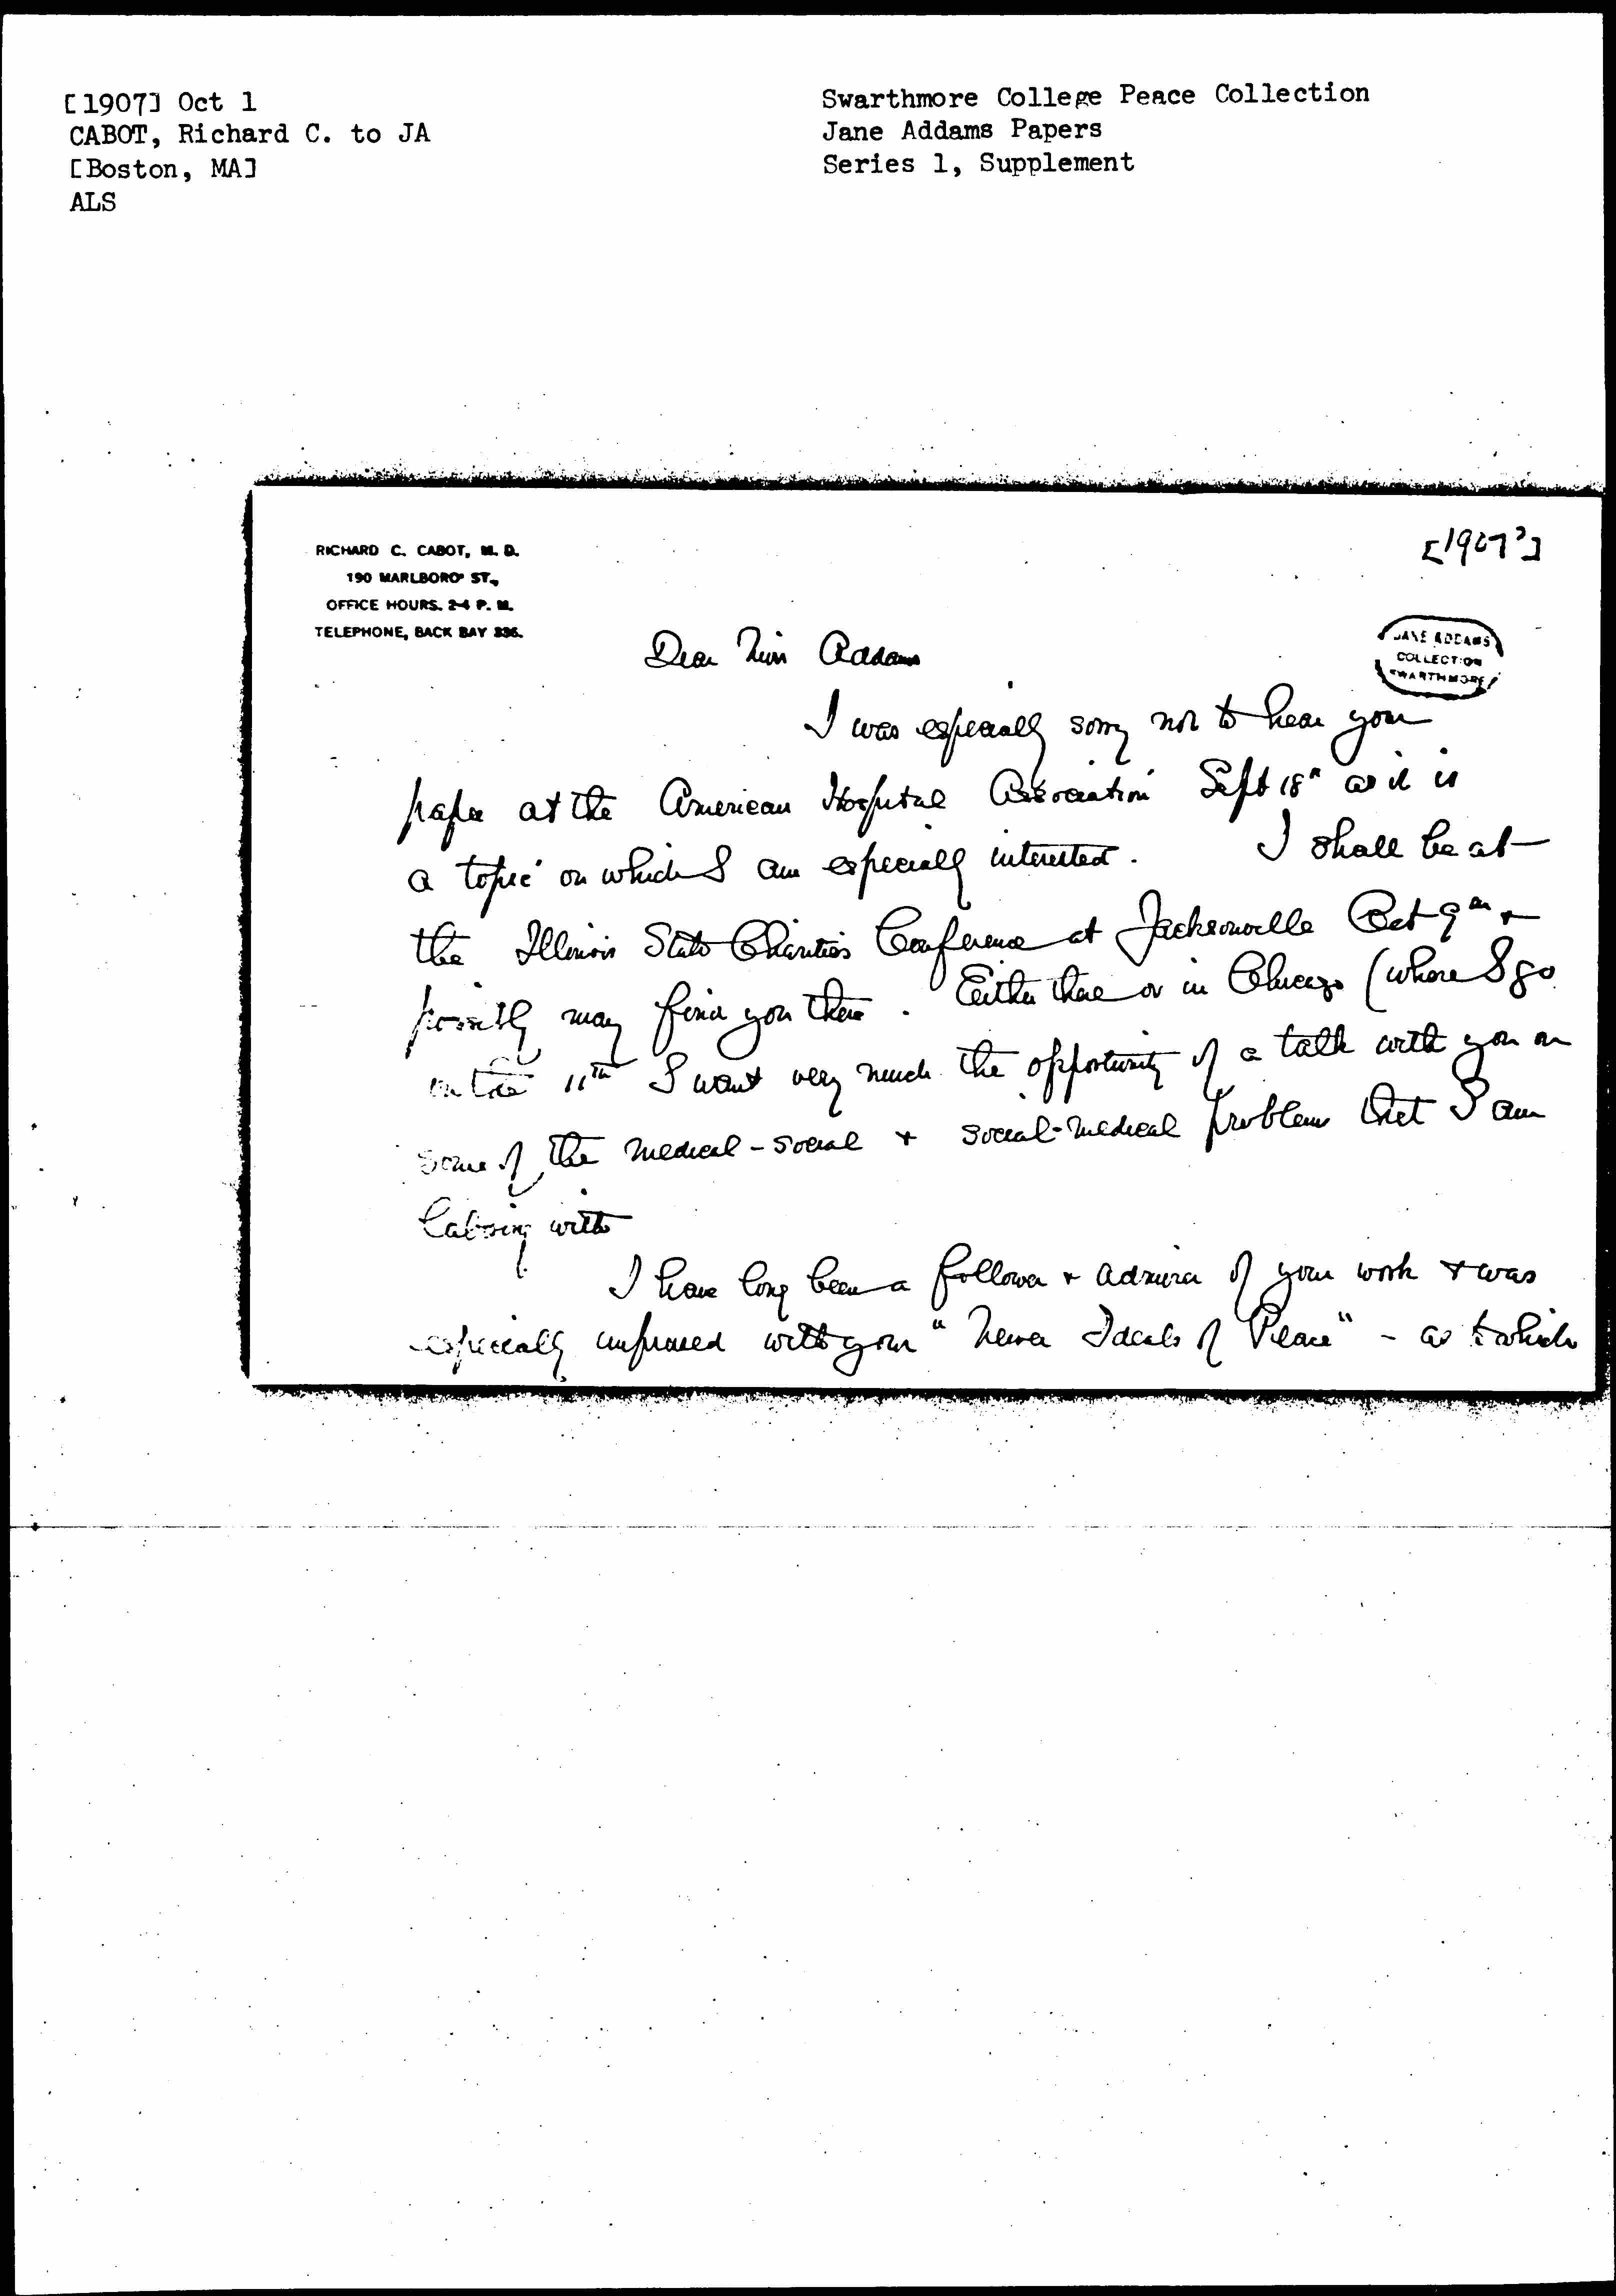 [1907] Oct 1
CABOT, Richard C. to JA
[Boston, MA]
ALS
Swarthmore College Peace Collection
Jane Addams Papers
Series 1, Supplement
RICHARD C. CABOT, M. D.
190 MARLBORO' ST.,
OFFICE HOURS. 2-4 P. M.
TELEPHONE, BACK BAY 336.
[1907?]
JANE ADDAMS
COLLECTION
SWARTHMORE
Dear Miss Addams
I was especially sorry not to hear your
paper at the American Hospital Association Sept 18" as it is
a topic on which I am especially interested. I shall be at
the Illinois State Charities Conference at Jacksonville Oct 9th +
possibly may find you there. Either there or in Chicago (where I go
on the 11th I want very much the opportunity of a talk with you on
some of the medical-social + social-medical problems that I am
laboring with
I have long been a follower + admirer of your work + was
especially impressed with your "Newer Ideals of Peace" - as to which